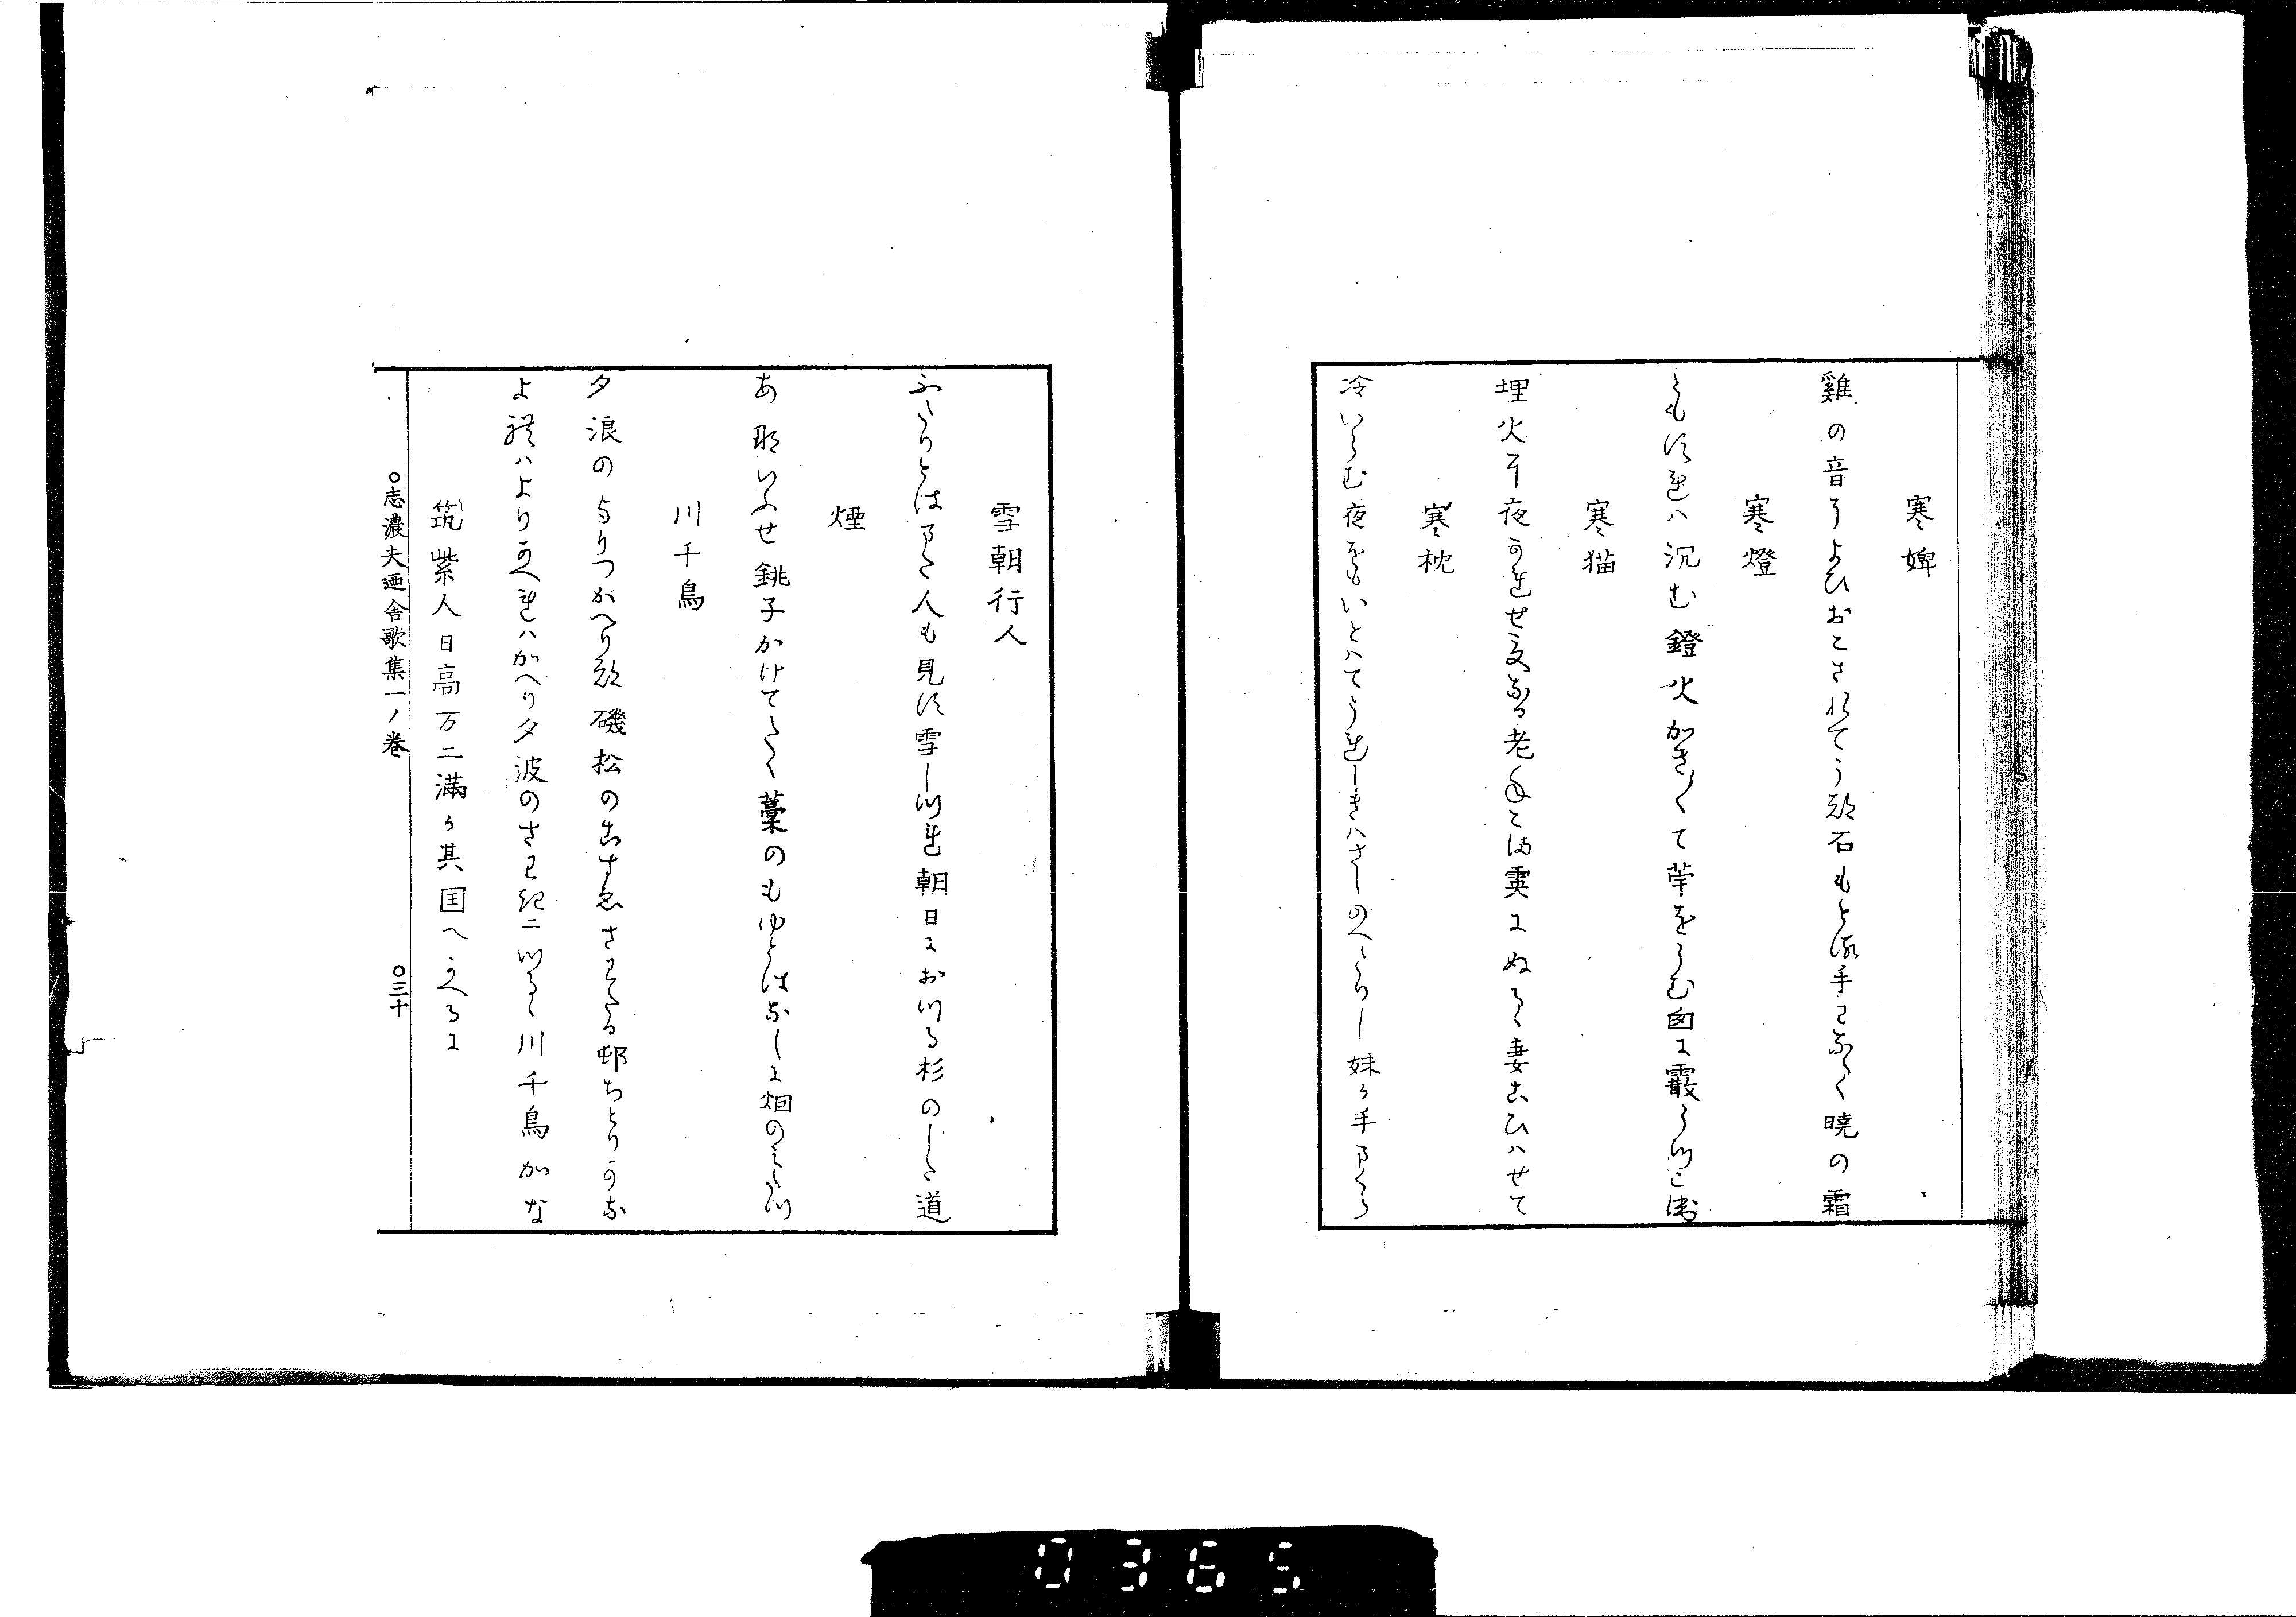 寒婢
雞の音によひおこされてうつ石もとる手わなゝく暁の霜
寒燈
ともすれハ沈む鐙火かき/\て苧をうむ窗に霰うつこゑ
寒猫
埋火に夜かれせすなる老ねこま霙にぬるゝ妻こひハせて
寒枕
冷いらむ夜をもいとハてうれしきハさしのへくらし妹か手まくら
雪朝行人
ふたりとはまた人も見す雪しつれ朝日におつる杉のした道
煙
あないふせ銚子かけてたく藁のもゆとはなしに烟のみたつ
川千鳥
夕浪のよりつかへりつ磯松のこすゑさわたる邨ちとりかな
よれハよりかへれハかへり夕波のさわきニつるゝ川千鳥かな
筑紫人日高万二満か其国へかへるに
○志濃夫廼舎歌集一ノ巻 ○三十
0365